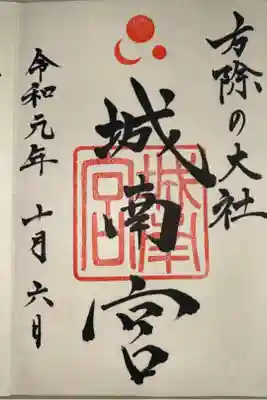 方除の大社
城南宮
城南宮
令和元年十月六日